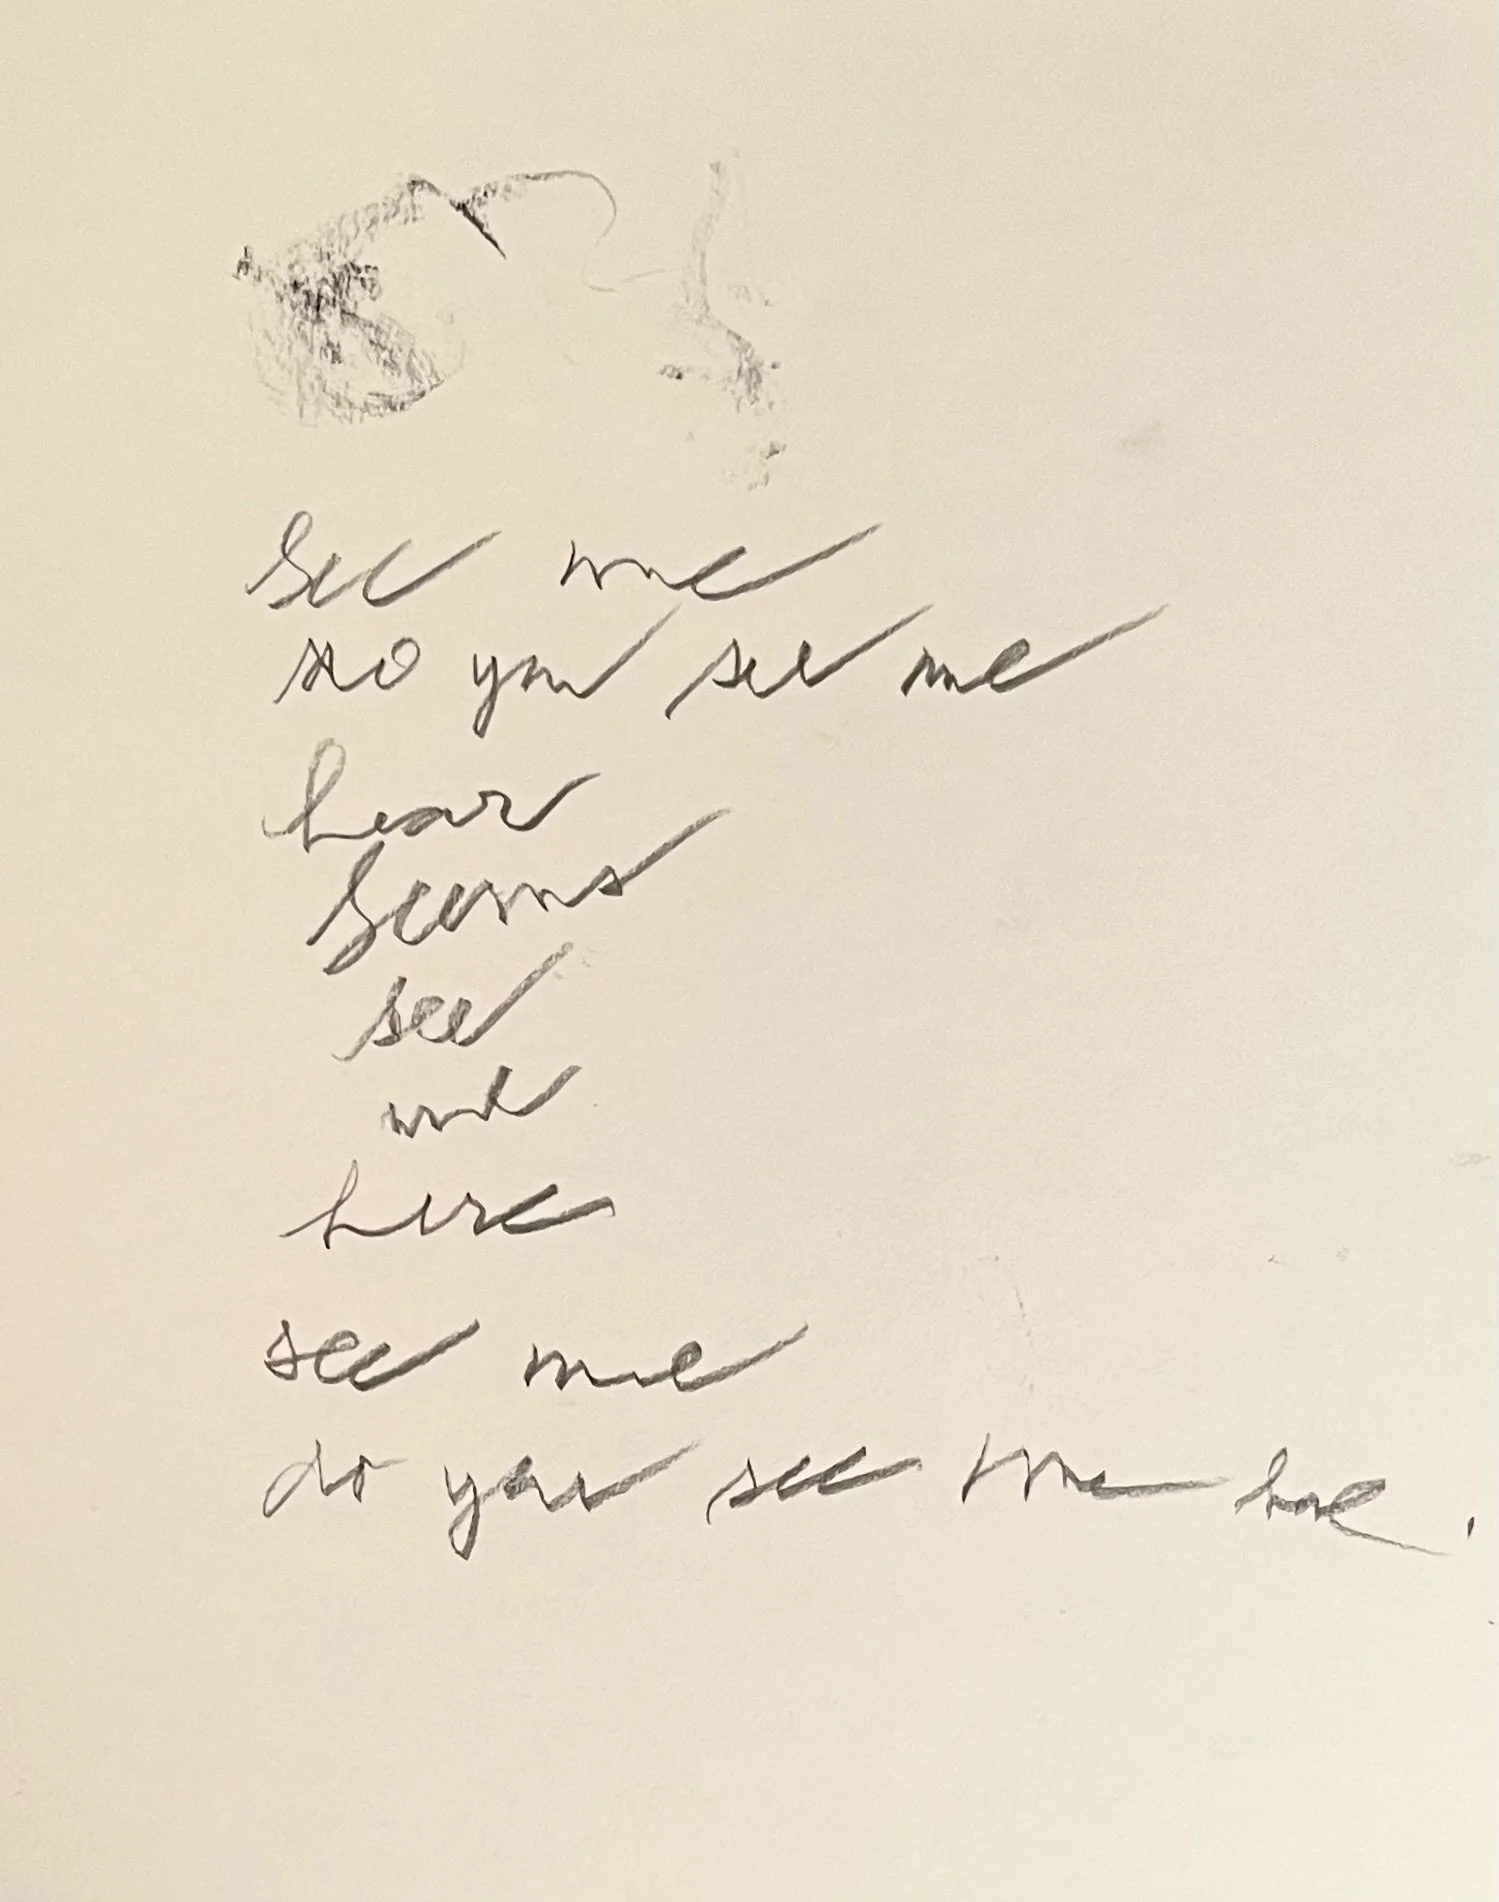 see me
do you see me
hear
seems
see
me
here
see me
do you see me here.